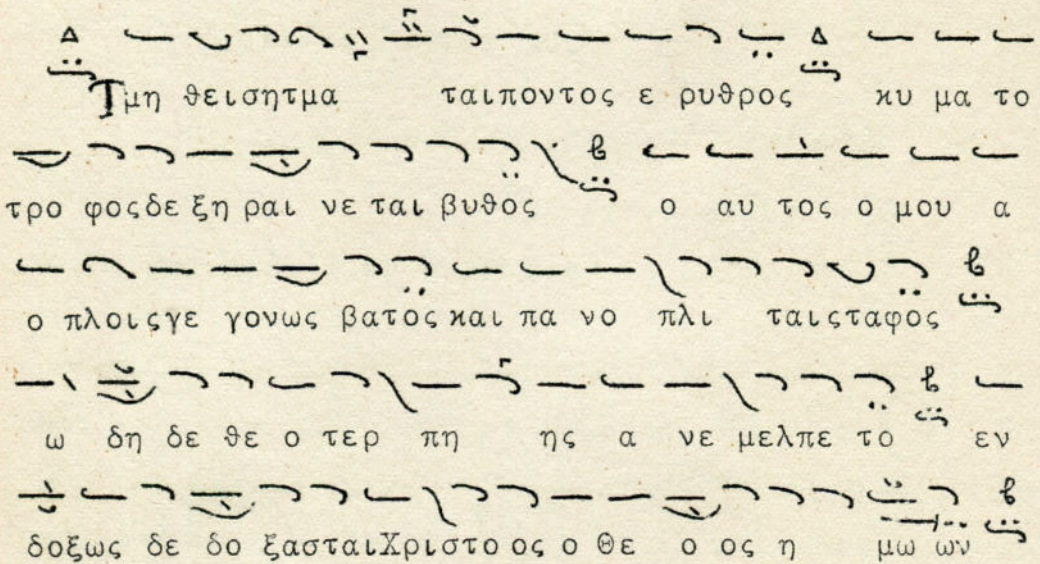 Τμη θεισητμα ταιποντος ε ρυθρος κυ μα το
τρο φοςδε ξη ραι νε ται βυθος ο αυ τος ο μου α
ο πλοιςγε γονως βατος και πα νο πλι ταιςταφος
ω δη δε θε ο τερ πη ης α νε μελπε το εν
δοξως δε δο ξασταιΧριστο ος ο Θε ο ος η μω ων